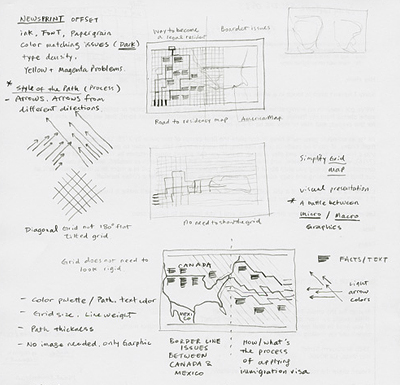 NEWSPRINT OFFSET
ink, FONT, Paper grain
color matching issues (Dark)
type density,
Yellow + Magenta Problems.
* Style of the Path (Process)
- Arrows. Arrows from
different directions
Diagonal Grid not 180° flat
Tilted grid
Grid does not need to
look rigid
- Color palette / Path, text color
- Grid size, Line weight
- Path thickness
- No image needed, only Garphic
way to become
a legal resident
Boarder issues
Road to residency map / American Map.
No need to show the grid
CANADA
MEXICO
BORDER LINE
ISSUES
BETWEEN
CANADA &
MEXICO
How/what's
the process
of applying
immigration visa
Simplify Grid
map
visual presentation
* A battle between
micro / Macro
Graphics
FACTS/TEXT
Light
arrow
colors